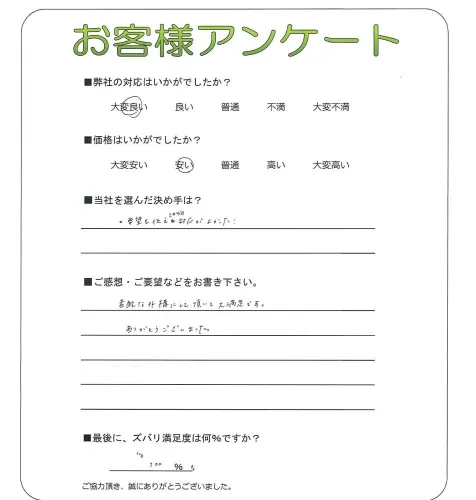 お客様アンケート
■弊社の対応はいかがでしたか?
大変良い 良い 普通 不満 大変不満
■価格はいかがでしたか?
大変安い 安い 普通 高い 大変高い
■当社を選んだ決め手は?
要望を伝え 対応がよかった!
■ご感想・ご要望などをお書き下さい。
素敵な仕様にして頂いて大満足です。
ありがとうございました。
■最後に、ズバリ満足度は何%ですか?
100 %
ご協力頂き、誠にありがとうございました。